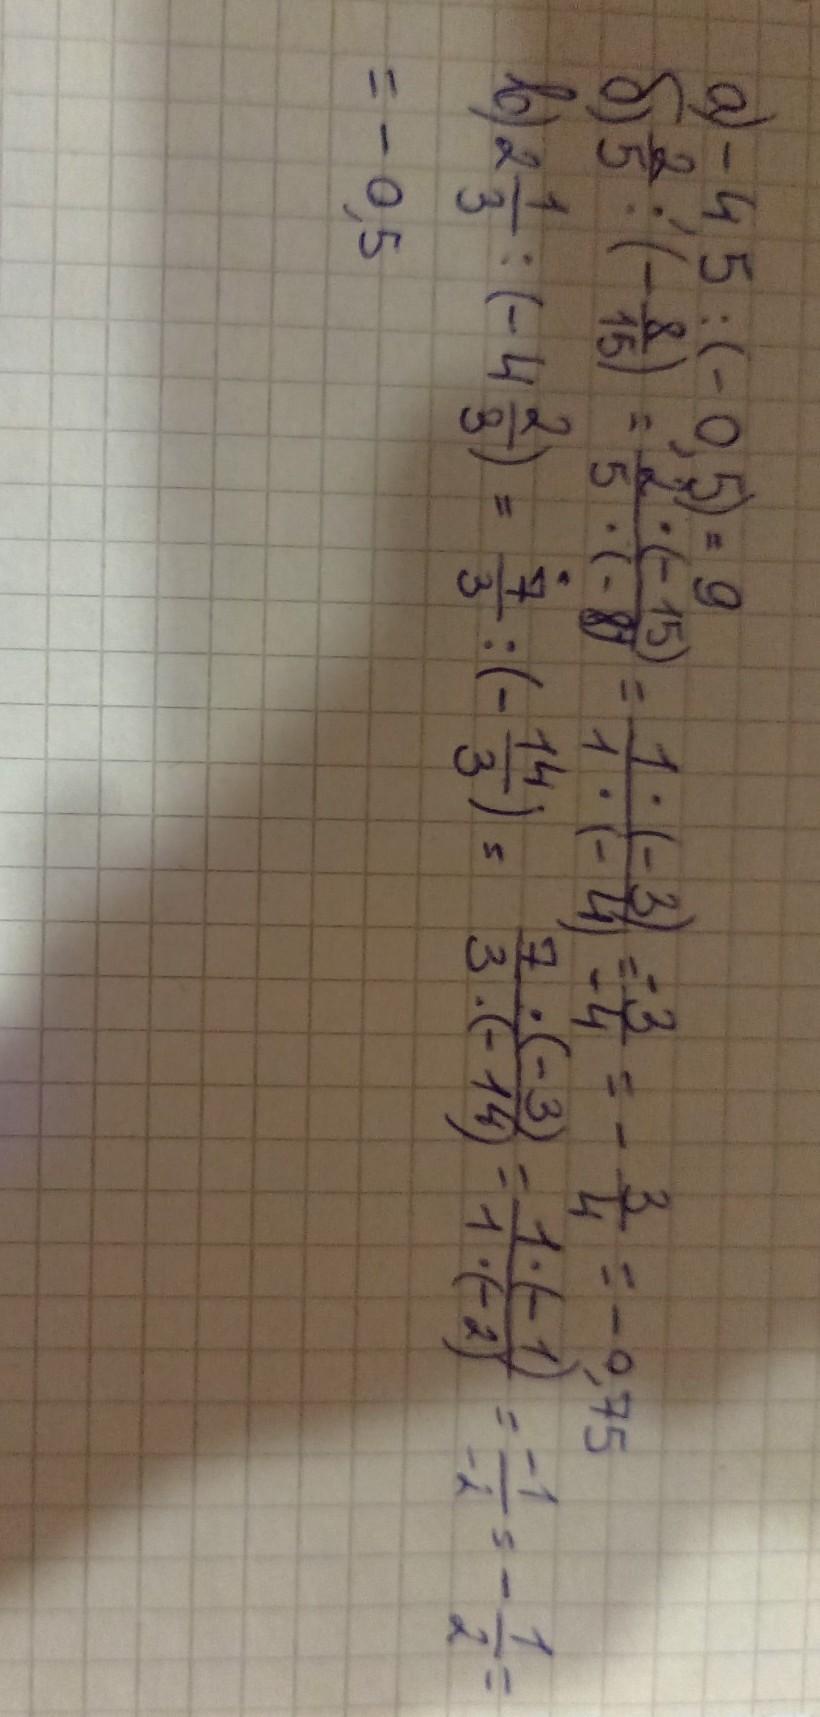 а) -4,5 : (-0,5) = 9
б) 2/5 : (-8/15) = 2·(-15)/5·(-8) = 1·(-3)/1·(-4) = -3/-4 = -3/4 = -0,75
в) 2 1/3 : (-4 2/3) = 7/3 : (-14/3) = 7·(-3)/3·(-14) = 1·(-1)/1·(-2) = -1/-2 = -1/2 =
= -0,5